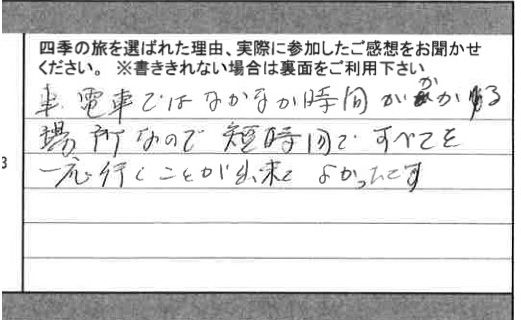 四季の旅を選ばれた理由、実際に参加したご感想をお聞かせ
ください。 ※書ききれない場合は裏面をご利用下さい
車、電車ではなかなか時間がかかる
場所なので短時間ですべてを
一応行くことが出来てよかったです
3